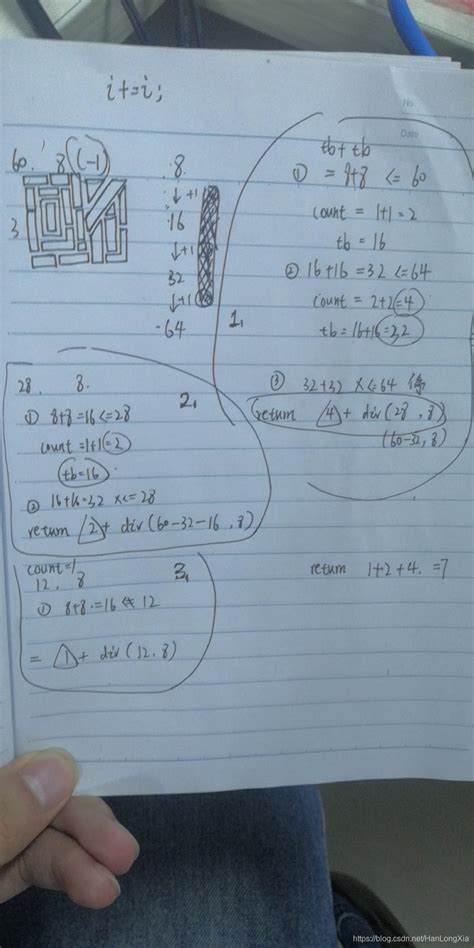 i+=i;
No
Date
60. 8 (-1)
3
8
↓+1
16
↓+1
32
↓+1
-64
tb+tb
① = 8+8 <= 60
count = 1+1=2
tb = 16
② 16+16=32 <=64
count = 2+2=4
tb=16+16=32
1,
③ 32+32 x<=64 停
return 4 + div(28,8)
(60-32,8)
28, 8.
2,
① 8+8=16<=28
count=1+1=2
tb=16
② 16+16=32 x<=28
return 2 + div(60-32-16,8)
count=1
12, 8
3,
① 8+8=16 12
= 1 + div(12,8)
return 1+2+4. =7
https://blog.csdn.net/HanLongXia